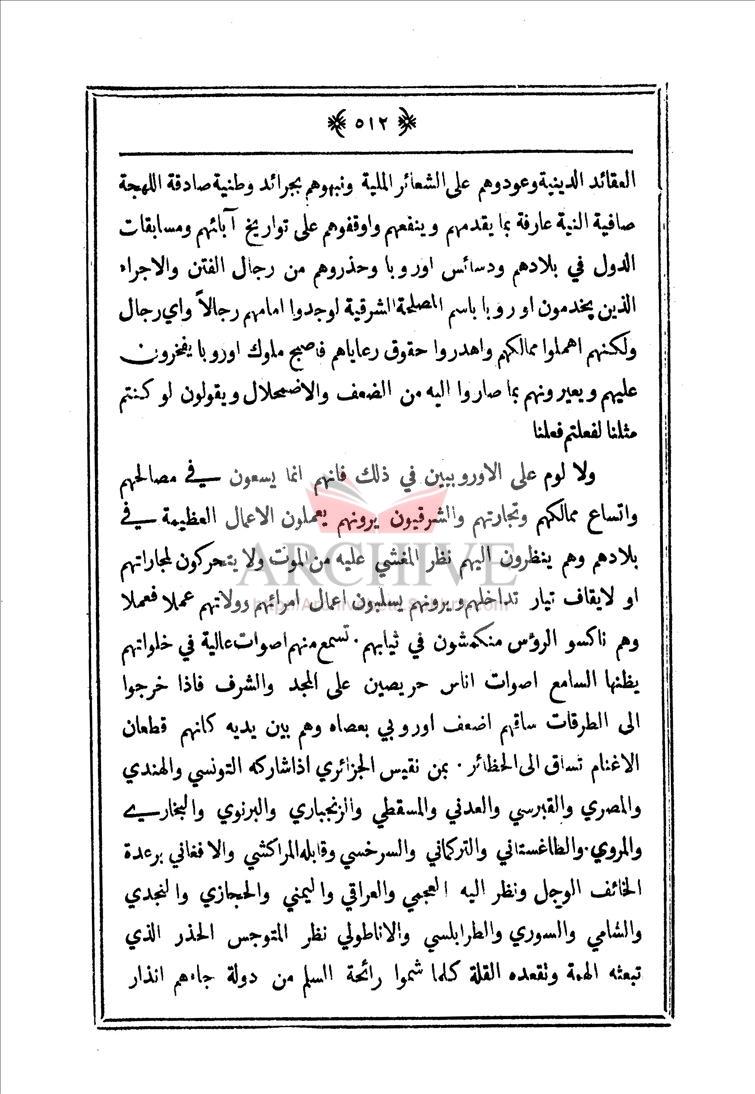 ﴿ ٥١٢ ﴾
العقائد الدينية وعودوهم على الشعائر الملية ونبهوهم بجرائد وطنية صادقة اللهجة
صافية النية عارفة بما يقدمهم وينفعهم واوقفوهم على تواريخ آبائهم ومسابقات
الدول في بلادهم ودسائس اوروبا وحذروهم من رجال الفتن والاجراء
الذين يخدمون اوروبا باسم المصلحة الشرقية لوجدوا امامهم رجالاً واي رجال
ولكنهم اهملوا ممالكهم واهدروا حقوق رعاياهم فاصبح ملوك اوروبا يفخرون
عليهم ويعيرونهم بما صاروا اليه من الضعف والاضمحلال ويقولون لو كنتم
مثلنا لفعلتم فعلنا
ولا لوم على الاوروبيين في ذلك فانهم انما يسعون في مصالحهم
واتساع ممالكهم وتجارتهم والشرقيون يرونهم يعملون الاعمال العظيمة في
بلادهم وهم ينظرون اليهم نظر المغشي عليه من الموت ولا يتحركون لمجاراتهم
او لايقاف تيار تداخلهم ويرونهم يسلبون اعمال امرائهم وولاتهم عملا فعملا
وهم ناكسو الرؤس منكمشون في ثيابهم . تسمع منهم اصوات عالية في خلواتهم
يظنها السامع اصوات اناس حريصين على المجد والشرف فاذا خرجوا
الى الطرقات ساقهم اضعف اوروبي بعصاه وهم بين يديه كانهم قطعان
الاغنام تساق الى الحظائر . بمن نقيس الجزائري اذا شاركه التونسي والهندي
والمصري والقبرسي والعدني والمسقطي والزنجباري والبرنوي والبخاري
والمروي . والطاغستاني والتركماني والسرخسي وقابله المراكشي والافغاني برعدة
الخائف الوجل ونظر اليه العجمي والعراقي واليمني والحجازي والنجدي
والشامي والسوري والطرابلسي والاناطولي نظر المتوجس الحذر الذي
تبعثه الهمة وتقعده القلة كلما شموا رائحة السلم من دولة جاءهم انذار
ARCHIVE